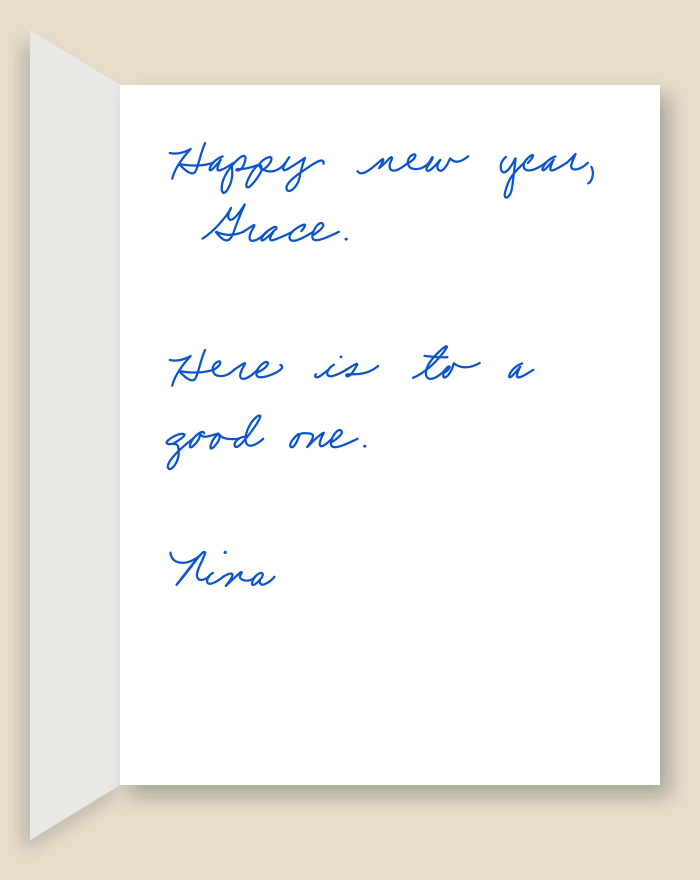 Happy new year,
Grace.
Here is to a
good one.
Nina